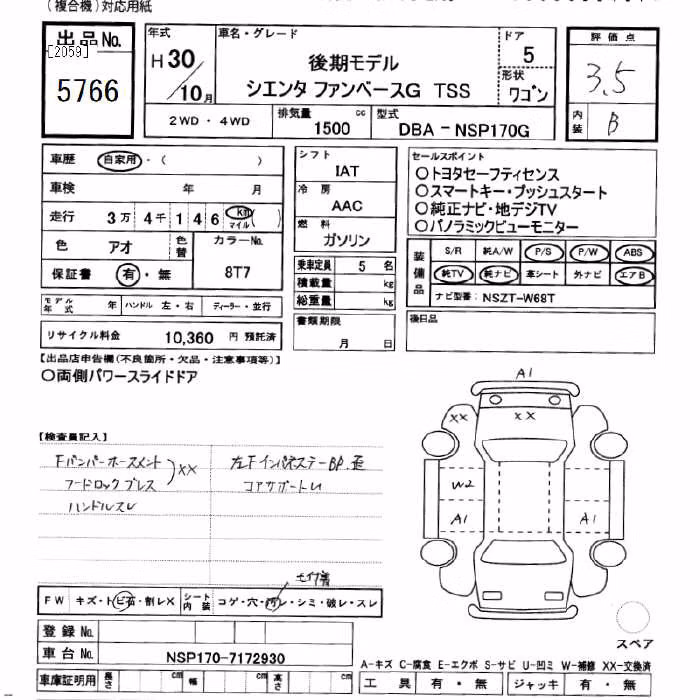 (複合機)対応用紙
出品No.
[2059]
5766
年式
H30/10月
車名・グレード
後期モデル
シエンタ ファンベースG TSS
ドア
5
形状
ワゴン
評価点
3.5
内装
B
2WD・4WD
排気量
1500 cc
型式
DBA-NSP170G
車歴 自家用・( )
車検 年 月
走行 3万4千146 km マイル( )
色 アオ
色替
カラーNo.
8T7
保証書 有・無
モデル年式 年 ハンドル 左・右 ディーラー・並行
リサイクル料金 10,360 円 預託済
シフト
IAT
冷房
AAC
燃料
ガソリン
乗車定員 5 名
積載量 kg
総重量 kg
書類期限
月 日
セールスポイント
○トヨタセーフティセンス
○スマートキー・プッシュスタート
○純正ナビ・地デジTV
○パノラミックビューモニター
装備品
S/R 純A/W P/S P/W ABS
純TV 純ナビ 革シート 外ナビ エアB
ナビ型番: NSZT-W68T
後日品
【出品店申告欄(不良箇所・欠品・注意事項等)】
○両側パワースライドドア
【検査員記入】
Fバンパーホースメント
フードロックブレス
XX
ハンドルスレ
左Fインパネステー BP.歪
コアサポートU
A1
XX
XX
W2
A1
A1
FW キズ・トビ石・割レX
シート内装 コゲ・穴・汚レ・シミ・破レ・スレ
スペア
登録No.
車台No.
NSP170-7172930
車庫証明用 長さ cm 幅 cm 高さ cm
A-キズ C-腐食 E-エクボ S-サビ U-凹ミ W-補修 XX-交換済
工具 有・無 ジャッキ 有・無